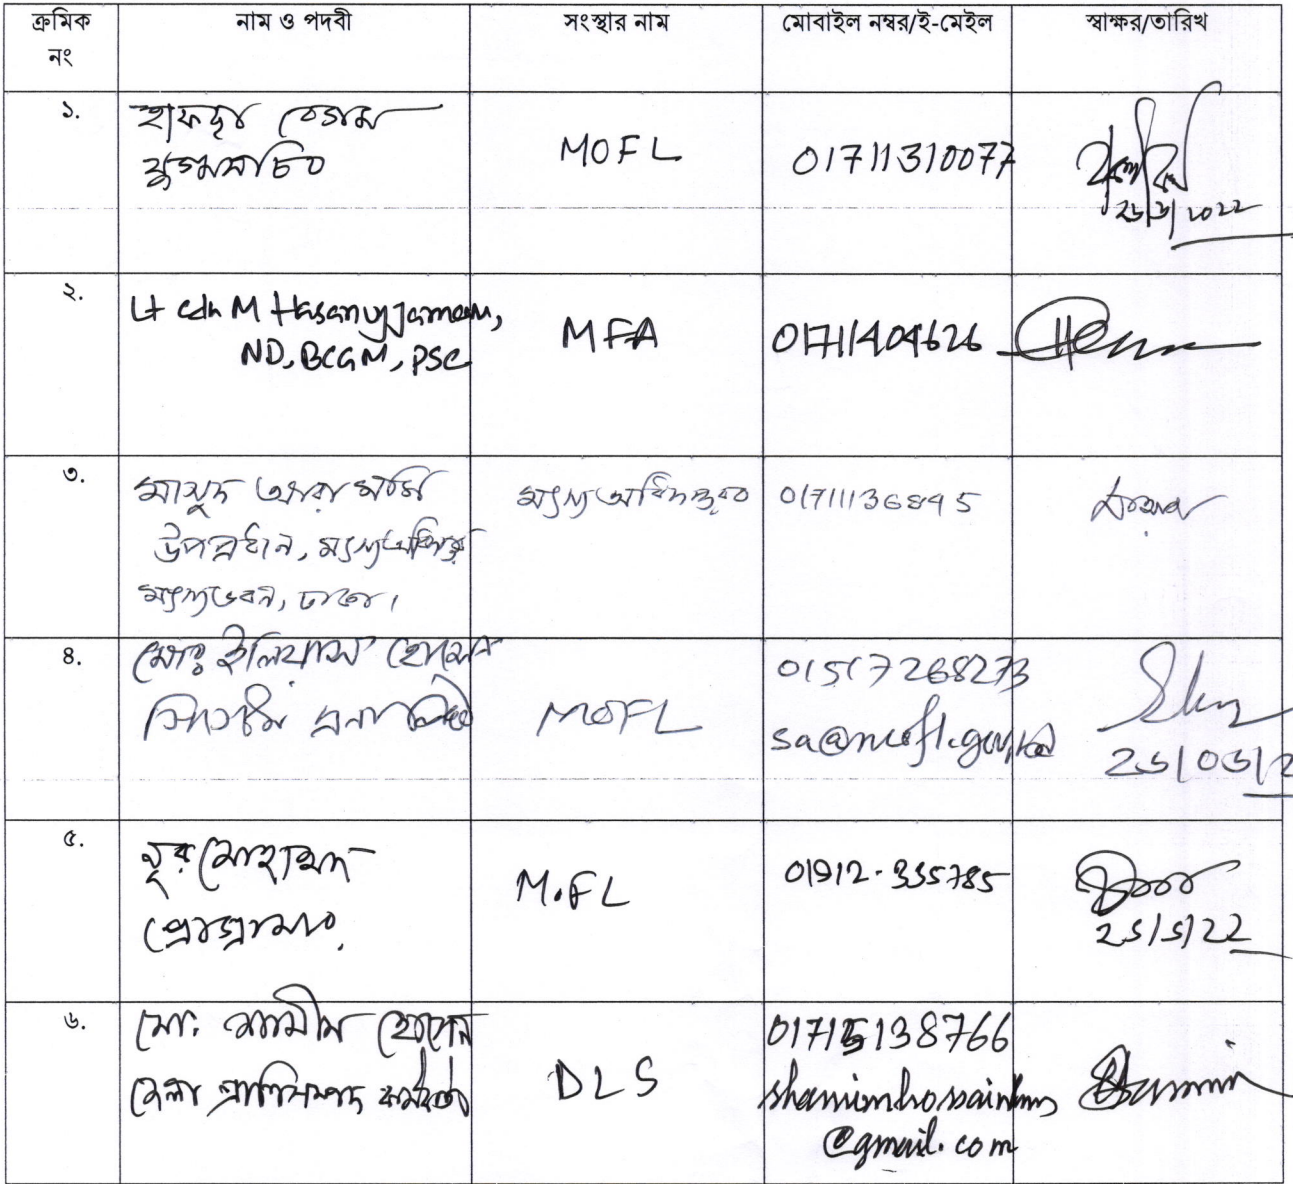 ক্রমিক নং নাম ও পদবী সংস্থার নাম মোবাইল নম্বর/ই-মেইল স্বাক্ষর/তারিখ
১. হাফছা বেগম
যুগ্মসচিব
MOFL 01711310077
2022
২. Lt cdr M Hasanuzzaman,
ND, BCGM, PSC
MFA 01711404626
৩. মাসুদ আরা মমি
উপপ্রধান, মৎস্য অধিদপ্তর
মৎস্যভবন, ঢাকা।
মৎস্য অধিদপ্তর 01711136845
৪. মোঃ ইলিয়াস হোসেন
সিস্টেম এনালিস্ট
MOFL 01517268273
৫. নূর মোহাম্মদ
প্রোগ্রামার
M.FL 01912-335785
৬. মো: শামীম হোসেন
জেলা প্রাণিসম্পদ কর্মকর্তা
DLS 01715138766
@gmail.com